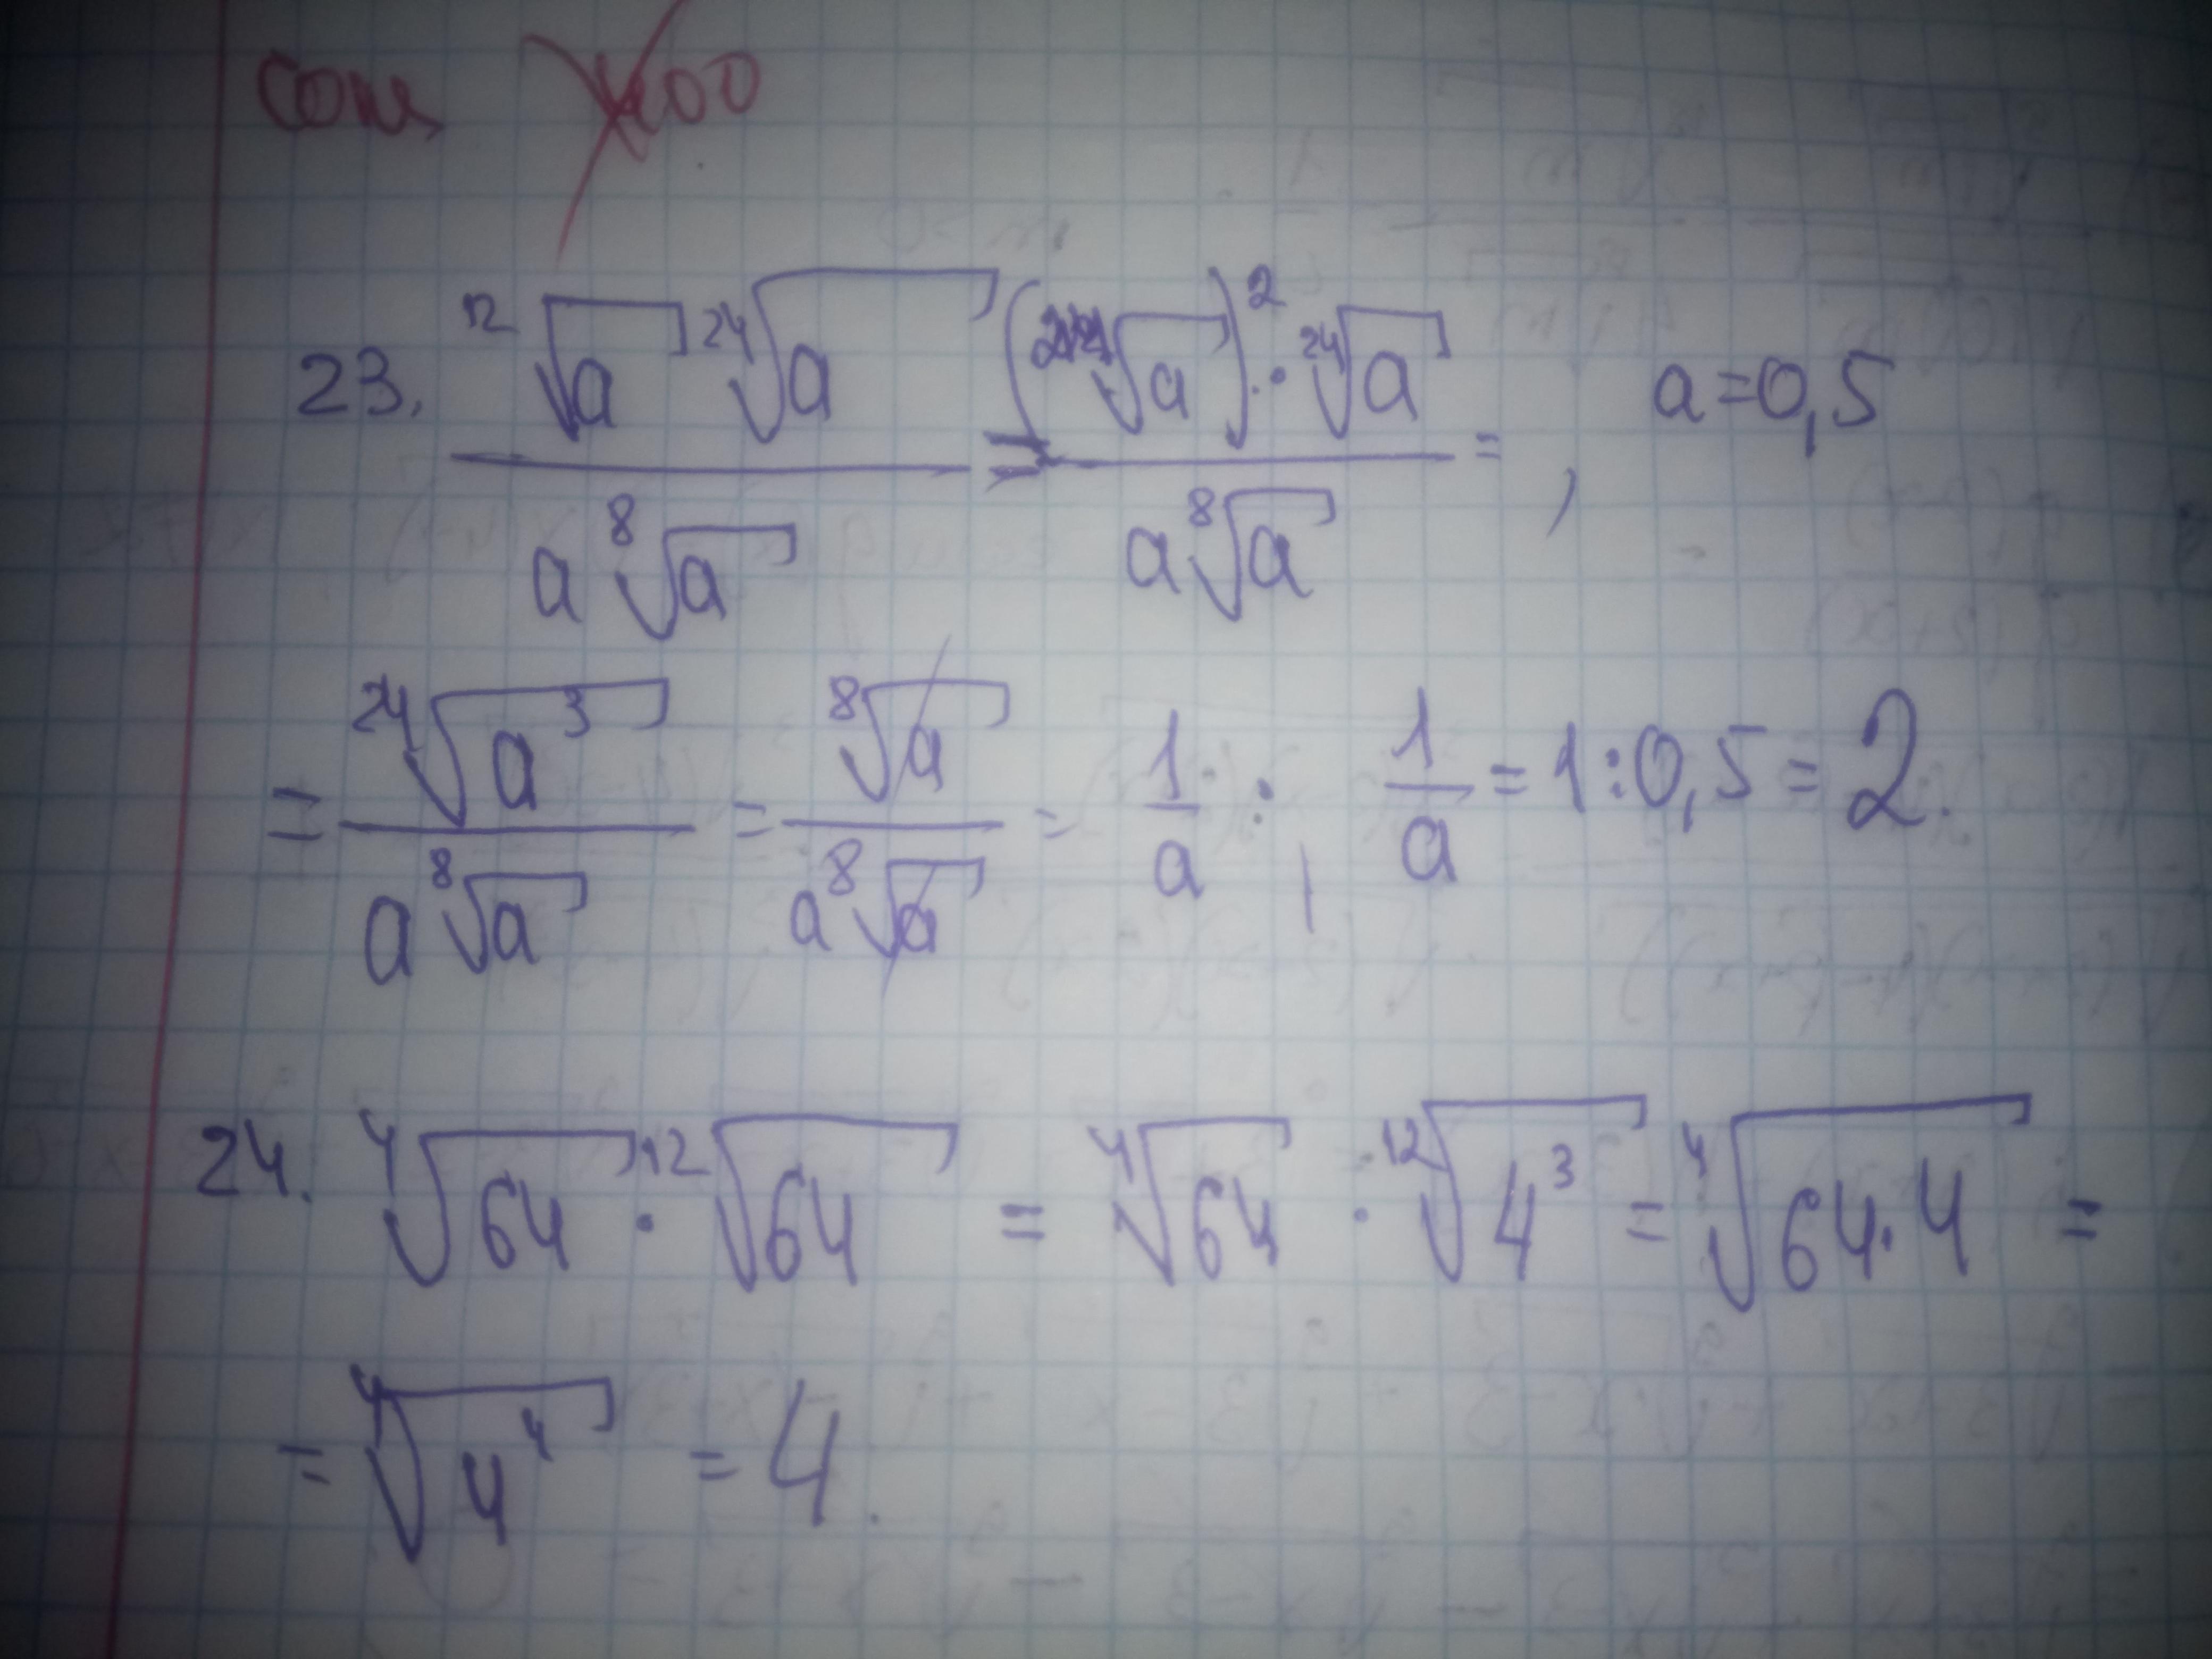 23. ¹²√a ²⁴√a / a ⁸√a = (²⁴√a)² · ²⁴√a / a ⁸√a = , a=0,5
= ²⁴√a³ / a ⁸√a = ⁸√a / a ⁸√a = 1/a ; 1/a = 1:0,5 = 2.
24. ⁴√64 · ¹²√64 = ⁴√64 · ¹²√4³ = ⁴√64·4 =
= ⁴√4⁴ = 4.